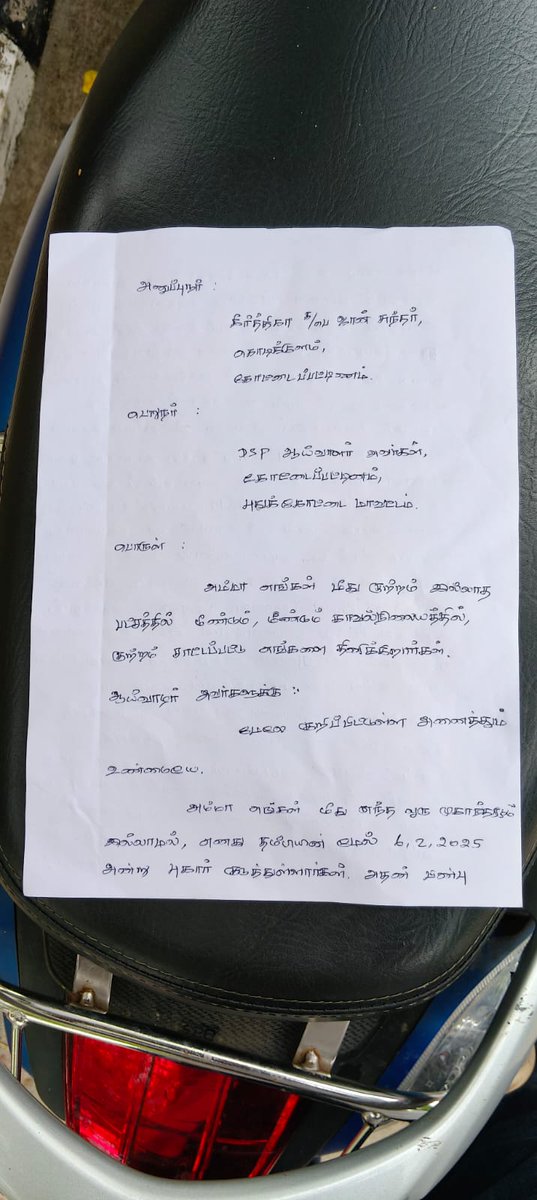 அனுப்புநர் :
கீர்த்திகா க/பெ ஜான் சுந்தர்,
கொடிக்குளம்,
கோட்டைப்பட்டிணம்.
பெறுநர் :
DSP ஆய்வாளர் அவர்கள்,
கோட்டைப்பட்டினம்,
புதுக்கோட்டை மாவட்டம்.
பொருள் :
அம்மா எங்கள் மீது குற்றம் இல்லாத
பட்சத்தில் மீண்டும், மீண்டும் காவல்நிலையத்தில்,
குற்றம் சாட்டப்பட்டு எங்களை திணிக்கிறார்கள்.
ஆய்வாளர் அவர்களுக்கு :
மேலே குறிப்பிட்டுள்ள அனைத்தும்
உண்மையே.
அம்மா எங்கள் மீது எந்த ஒரு
இல்லாமல், எனது தம்பியின் மேல் 6, 2, 2025
அன்று புகார் கொடுத்துள்ளார்கள். அதன் பின்பு